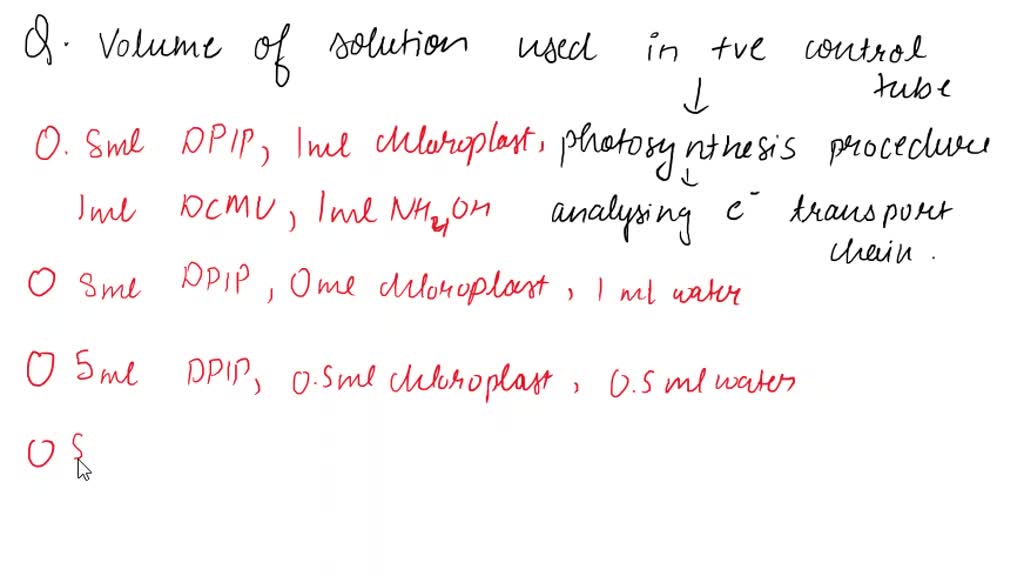 Q. Volume of solution used in +ve control tube
↓
O. 5ml DPIP, 1ml chloroplast, photosynthesis procedure
↓
1ml DCMU, 1ml NH4OH analysing e- transport chain.
O 5ml DPIP, 0ml chloroplast, 1 ml water
O 5ml DPIP, 0.5ml chloroplast, 0.5 ml water
O 5